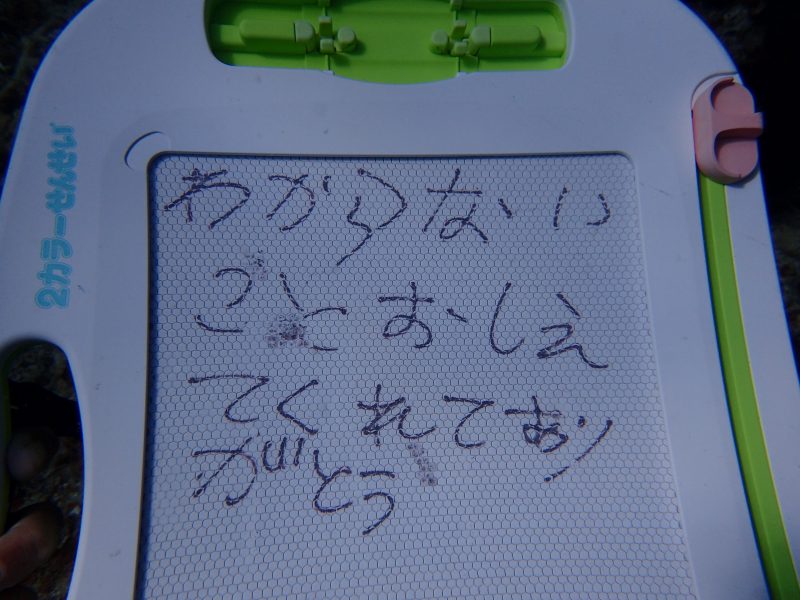 2カラーせんせい
わからない
ことおしえ
てくれてあり
がとう